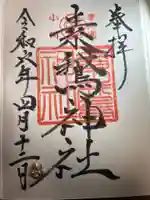 奉拝
素鵞神社
令和六年四月十二日